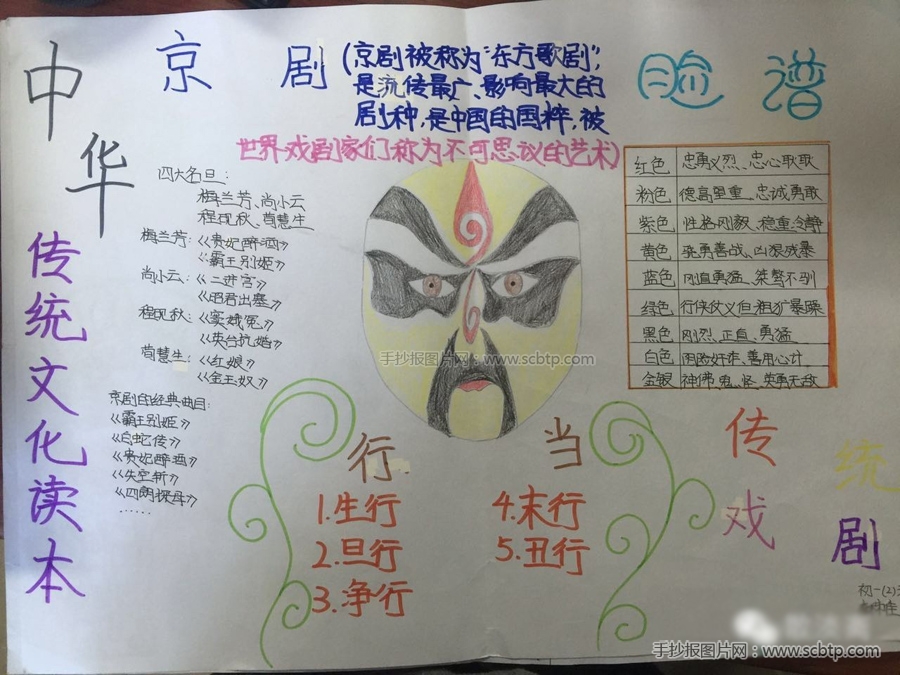 中华
传统文化读本
京剧
(京剧被称为"东方歌剧",
是流传最广、影响最大的
剧种,是中国的国粹,被
世界戏剧家们称为不可思议的艺术)
脸谱
四大名旦:
梅兰芳、尚小云
程砚秋、荀慧生
梅兰芳:《贵妃醉酒》
《霸王别姬》
尚小云:《二进宫》
《昭君出塞》
程砚秋:《窦娥冤》
《英台抗婚》
荀慧生:《红娘》
《金玉奴》
京剧的经典曲目:
《霸王别姬》
《白蛇传》
《贵妃醉酒》
《失空斩》
《四朗探母》
......
红色 忠勇义烈、忠心耿耿
粉色 德高望重、忠诚勇敢
紫色 性格刚毅、稳重冷静
黄色 骁勇善战、凶狠残暴
蓝色 刚直勇猛、桀骜不驯
绿色 行侠仗义但粗犷暴躁
黑色 刚烈、正直、勇猛
白色 阴险奸诈、善用心计
金银 神、佛、鬼、怪、英勇无敌
手抄报图片网:www.scbtp.com
行当
1.生行
2.旦行
3.净行
4.末行
5.丑行
传统
戏剧
初一(2)
手抄报图片网:www.scbtp.com